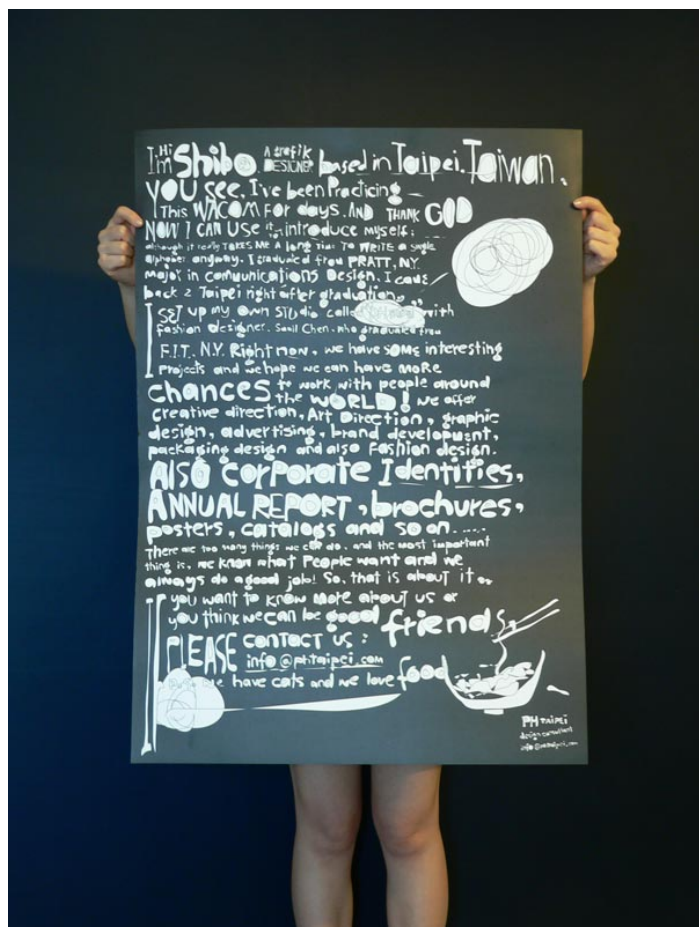 Hi I'm Shibo A grafik DESIGNER based in Taipei. Taiwan.
YOU see, I've been Practicing
This WACOM FOR days. AND THANK GOD
NOW I CAN USE it to introduce myself;
although it really TAKES ME A long Time TO WRITE a single
alphabet anyway. I graduated from PRATT, NY.
major in communications Design. I came
back 2 Taipei right after graduation.
I SET up my own STUdio called with
fashion designer. Chen. who graduated from
F.I.T. N.Y. Right now, we have SOME interesting
Projects and we hope we can have MORE
chances to work with people around
the WORLD! we offer
creative direction, Art Direction, graphic
design, advertising, brand development,
packaging design and also Fashion design.
Also corporate Identities,
ANNUAL REPORT, brochures,
posters, catalogs and so on.....
There are too many things we can do, and the most important
thing is, we know what People want and we
always do a good job! So, that is about it..
If you want to know more about us or
you think we can be good friends,
PLEASE contact us:
info@phtaipei.com
we have cats and we love food
PH TAIPEI
design consultant
info@phtaipei.com